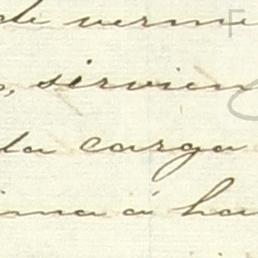 de verme
, sirvien
la carga
ima á ha